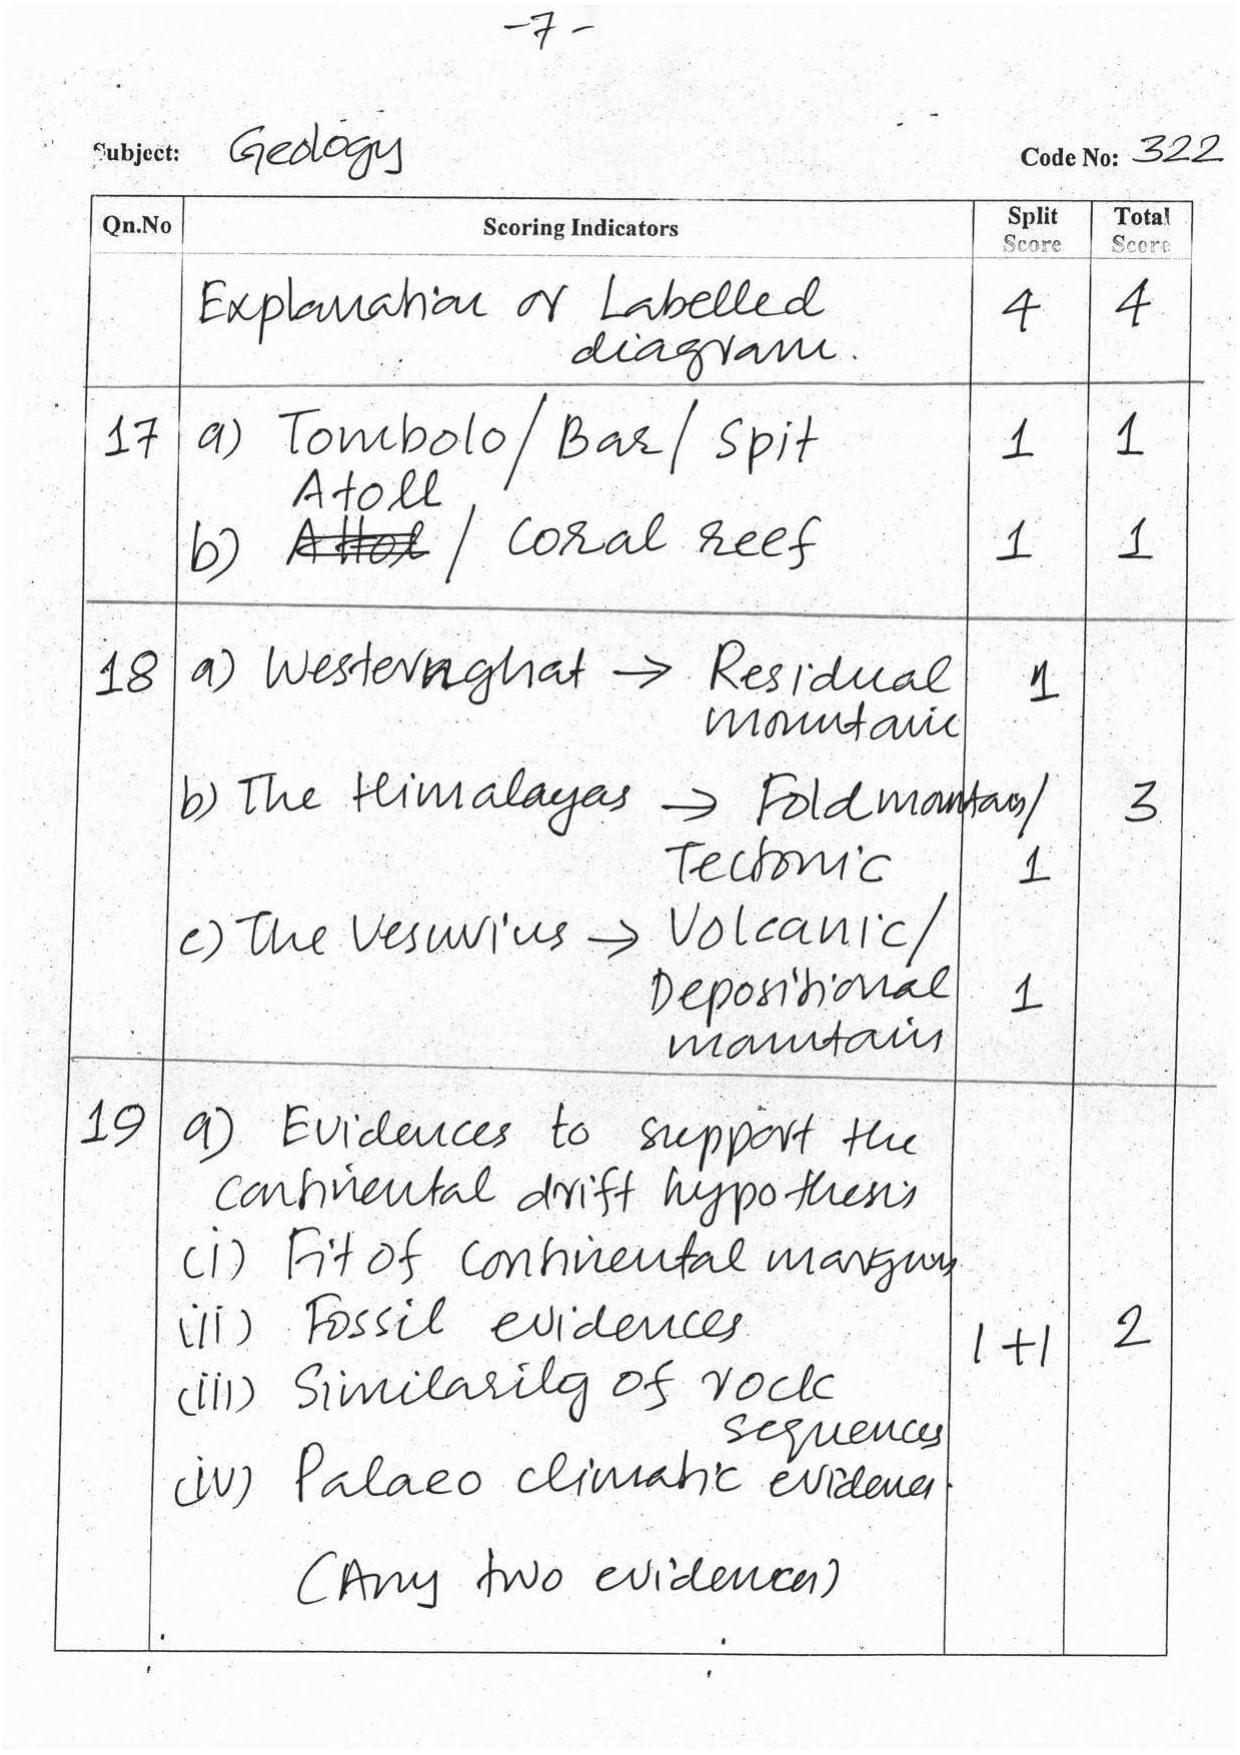 -7-
Subject: Geology Code No: 322
Qn.No Scoring Indicators Split Score Total Score
Explanation or Labelled 4 4
diagram.
17 a) Tombolo/Bar/ Spit 1 1
Atoll
b) Attol / Coral reef 1 1
18 a) Westernghat → Residual 1
mountain
b) The Himalayas → Fold mountain/ 3
Tectonic 1
c) The Vesuvius → Volcanic/
Depositional 1
mountain
19 a) Evidences to support the
continental drift hypothesis
(i) Fit of continental margins
(ii) Fossil evidences 1+1 2
(iii) Similarity of rock
sequences
(iv) Palaeo climatic evidences.
(Any two evidences)